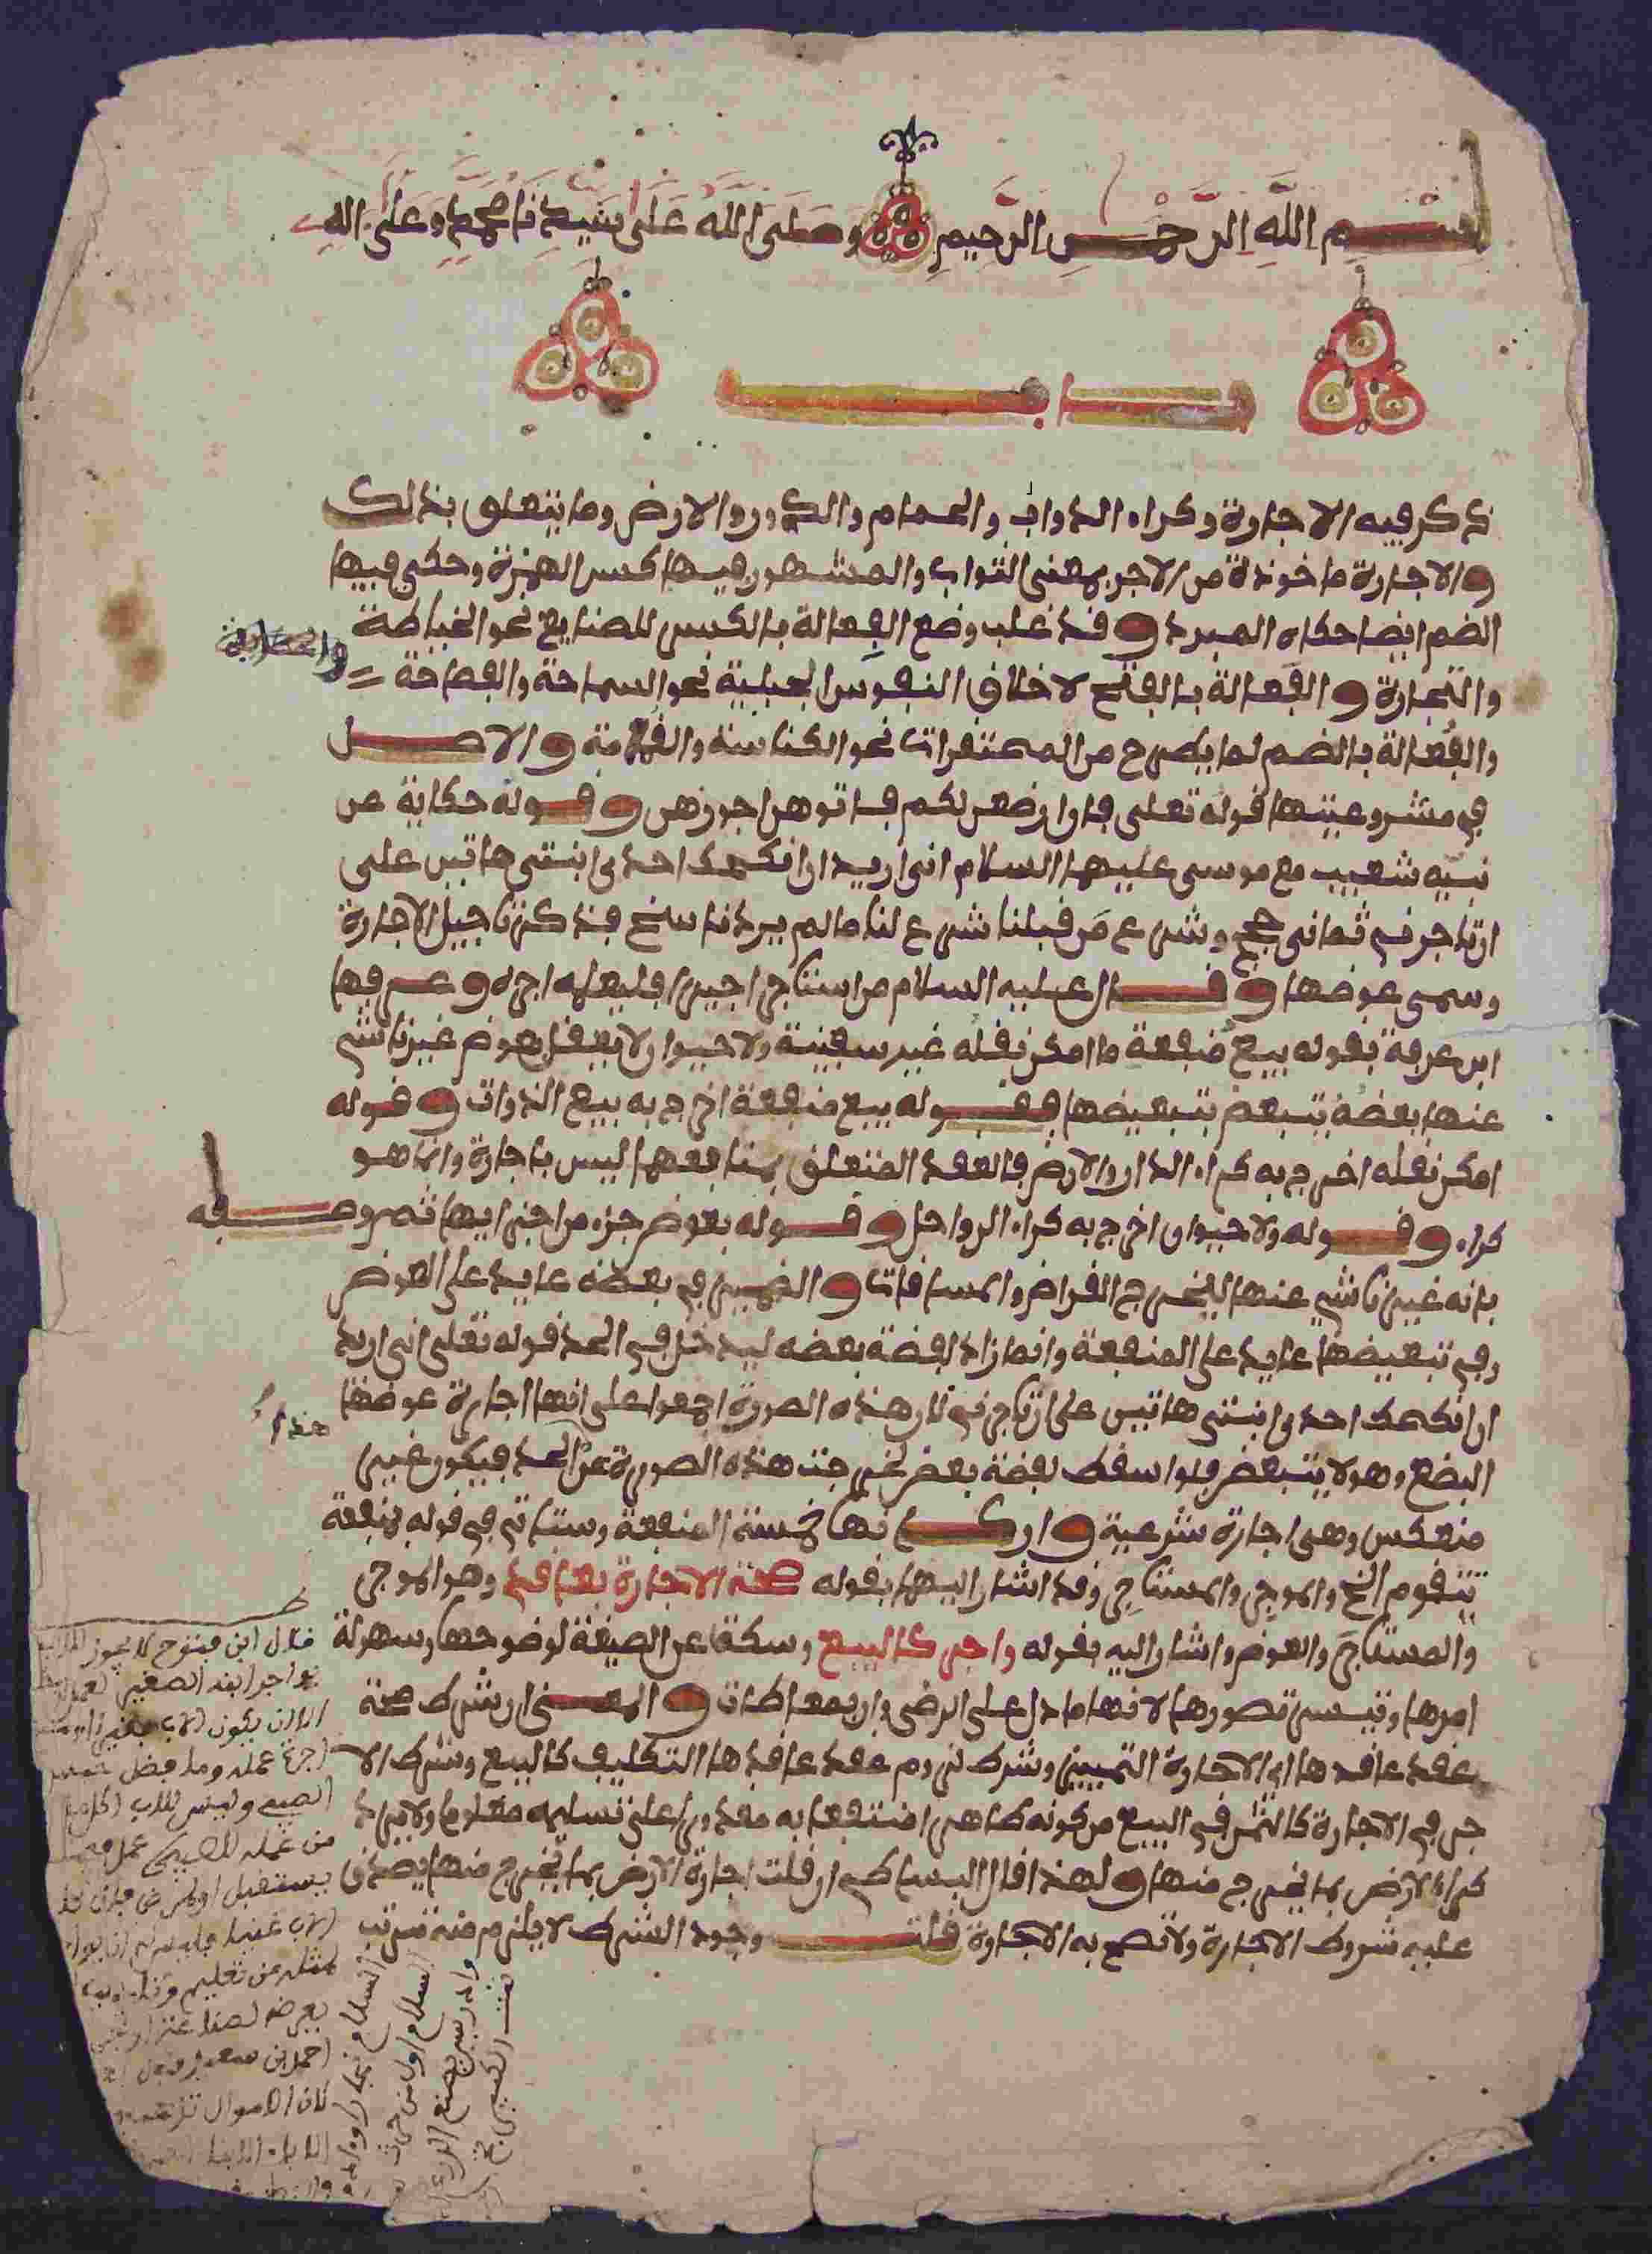 بسم الله الرحمن الرحيم وصلى الله على سيدنا محمد وعلى اله
باب
ذكر فيه الاجارة وكراء الدواب والحمام والدور والارض وما يتعلق بذلك
والاجارة ماخوذة من الاجر بمعنى الثواب والمشهور فيها كسر الهمزة وحكي فيها
الضم ايضا حكاه المبرد وقد غلب وضع الفعالة بالكسر للصنايع نحو الخياطة
والتجارة والفعالة بالفتح لاخلاق النفوس الجبلية نحو السماحة والفصاحة
والفعالة بالضم لما يطرح من المحتقرات نحو الكناسة والقلامة والاصل
في مشروعيتها قوله تعلى فان ارضعن لكم فـاتوهن اجورهن وقوله حكاية عن
نبيه شعيب مع موسى عليهما السلام انى اريد ان انكحك احدى ابنتى هاتين على
ان تاجرنى ثمانى حجج وشرع من قبلنا شرع لنا ما لم يرد ناسخ فذكر تاجيل الاجارة
وسمى عوضها وقال عليه السلام من استاجر اجيرا فليعلمه اجره وعرفها
ابن عرفة بقوله بيع منفعة ما امكن نقله غير سفينة ولا حيوان لا يعقل بعوض غير ناشئ
عنها بعضه يتبعض بتبعيضها فقوله بيع منفعة اخرج به بيع الذوات وقوله
امكن نقله اخرج به كراء الدار والارض فالعقد المتعلق بمنافعهما ليس باجارة وانما هو
كراء وقوله ولا حيوان اخرج به كراء الرواحل وقوله بعوض جزء من اجزايها ثم وصفه
بانه غير ناشئ عنها ليخرج القراض والمساقات والضمير في بعضه عايد على العوض
وفي تبعيضها عايد على المنفعة وانما زاد لفظة بعضه ليدخل في الحد قوله تعلى انى اريد
ان انكحك احدى ابنتى هاتين على ان تاجرنى لان هذه الصورة اجمعوا على انها اجارة عوضها
البضع وهو لا يتبعض فلو اسقط لفظة بعض لخرجت هذه الصورة عن الحد فيكون غير
منعكس وهى اجارة شرعية واركانها خمسة المنفعة وستاتي في قوله بمنفعة
تتقوم الخ والموجر والمستاجر وقد اشار اليهما بقوله صحة الاجارة بعاقد وهو الموجر
والمستاجر والعوض واشار اليه بقوله واجر كالبيع وسكت عن الصيغة لوضوحها وسهولة
امرها وتيسر تصورها لانها ما دل على الرضى وان بمعاطات والمعنى ان شرط صحة
عقد عاقدها اي الاجارة التمييز وشرط لزوم عقد عاقدها التكليف كالبيع وشرط الا
جر في الاجارة كالثمن في البيع من كونه طاهرا منتفعا به مقدورا على تسليمه معلوما ولا يراد
كراء الارض بما يخرج منها ولهذا قال البساطي ان قلت اجارة الارض بما يخرج منها يصدق
عليه شروط الاجارة ولا تصح به الاجارة قلت وجود الشرط لا يلزم منه ترتب
قال ابن فتوح لا يجوز للاب ان
يواجر ابنه الصغير
الا ان يكون الاب فقيرا
اجرة عمله وما فضل
الصبي وليس للاب اكل
من عمله للصبي